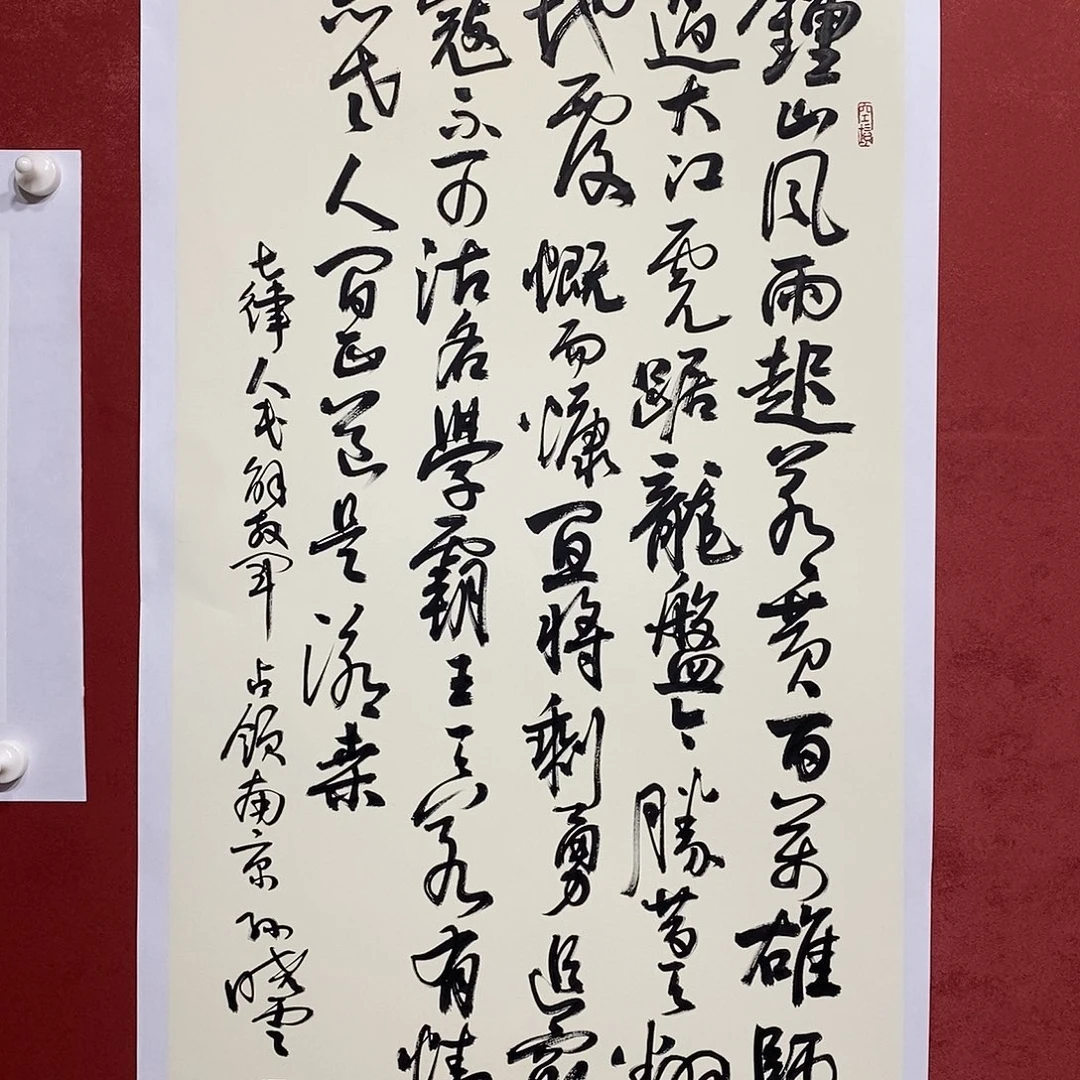 鍾山風雨起蒼黄百萬雄師
過大江虎踞龍盤今勝昔天翻
地覆慨而慷宜將剩勇追窮
寇不可沽名學霸王天若有情
亦老人間正道是滄桑
七律人民解放軍占領南京 孫曉雲